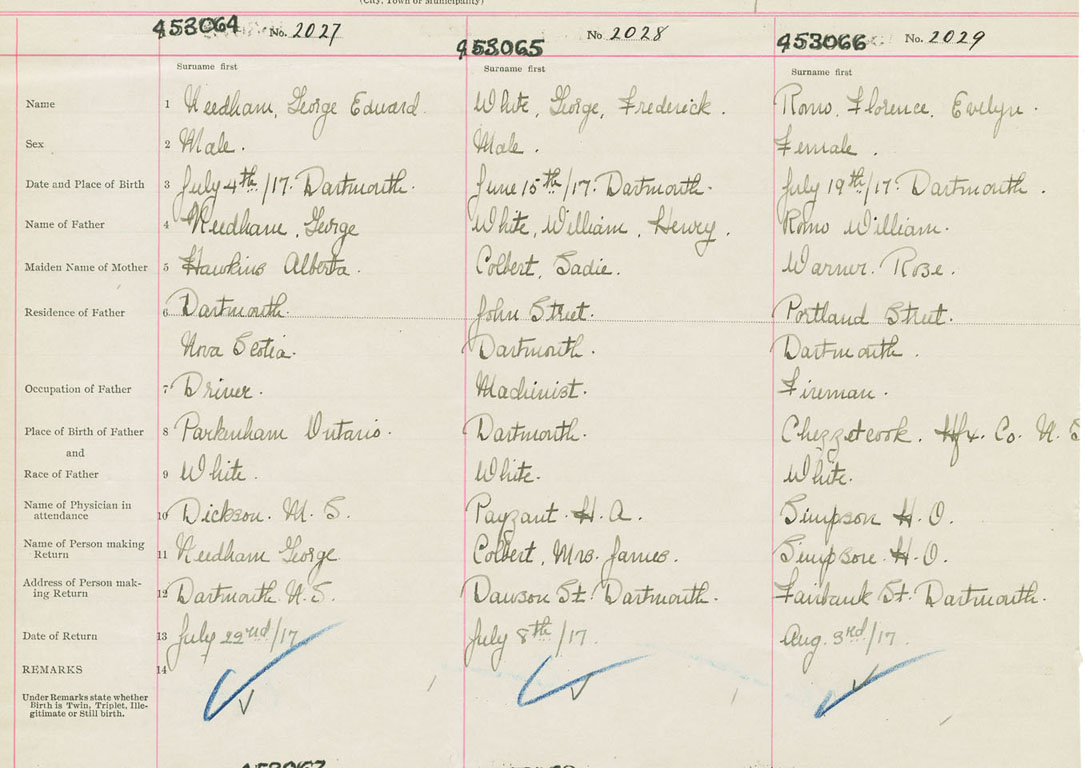 (City, Town or Municipality)
453064 No. 2027
453065 No 2028
453066 No. 2029
Surname first Surname first Surname first
Name 1 Needham, George Edward White, George, Frederick. Romo, Florence, Evelyn.
Sex 2 Male. Male. Female.
Date and Place of Birth 3 July 4th/17. Dartmouth. June 15th/17. Dartmouth. July 19th/17. Dartmouth.
Name of Father 4 Needham, George White, William, Henry. Romo William.
Maiden Name of Mother 5 Hawkins Alberta. Colbert, Sadie. Warner. Rose.
Residence of Father 6 Dartmouth. John Street. Portland Street.
Nova Scotia. Dartmouth. Dartmouth.
Occupation of Father 7 Driver. Machinist. Fireman.
Place of Birth of Father 8 Parkenham Ontario. Dartmouth. Chezzetcook. Hfx. Co. N. S
and
Race of Father 9 White. White. White.
Name of Physician in
attendance 10 Dickson. M. S. Payzant. H. A. Simpson H. O.
Name of Person making
Return 11 Needham George Colbert, Mrs. James. Simpson. H. O.
Address of Person mak-
ing Return 12 Dartmouth. N. S. Dawson St. Dartmouth. Fairbank St. Dartmouth.
Date of Return 13 July 22nd/17 July 8th/17. Aug. 3rd/17.
REMARKS 14
Under Remarks state whether
Birth is Twin, Triplet, Ille-
gitimate or Still birth.